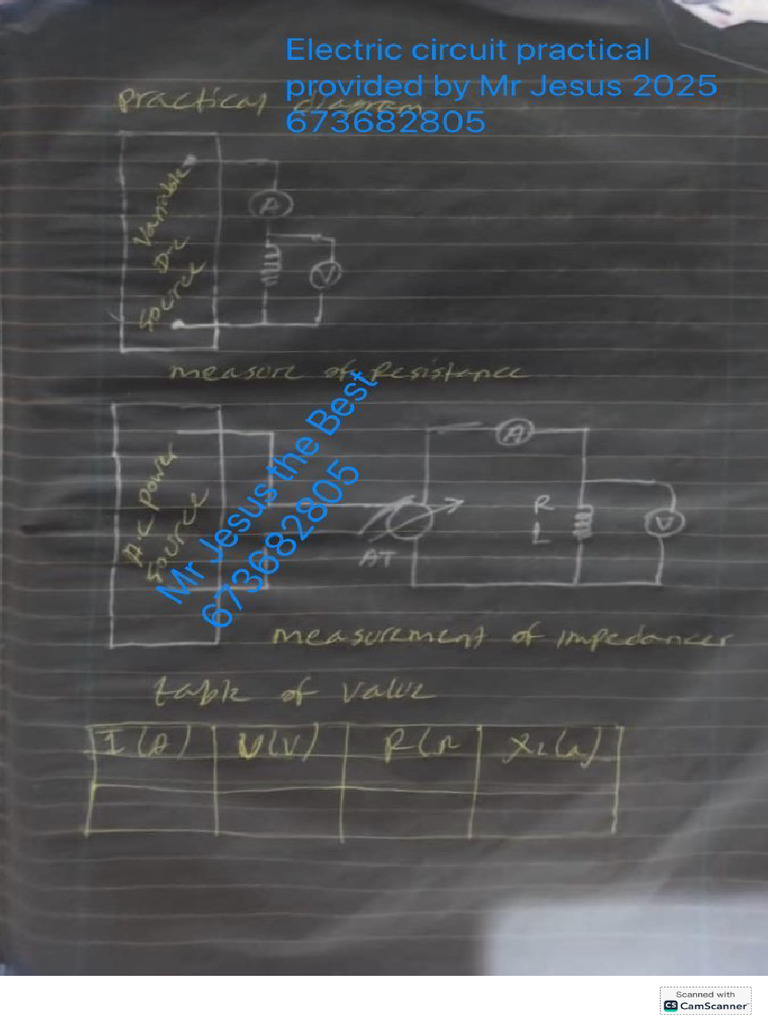 Electric circuit practical
provided by Mr Jesus 2025
673682805
Practical diagram
A
Variable
D.c
Source
V
measure of Resistance
A
A.c power
Source
R
L
V
AT
Mr Jesus the Best
673682805
measurement of impedancer
table of value
I(A) V(V) R(Ω XL(Ω)
Scanned with
CS CamScanner